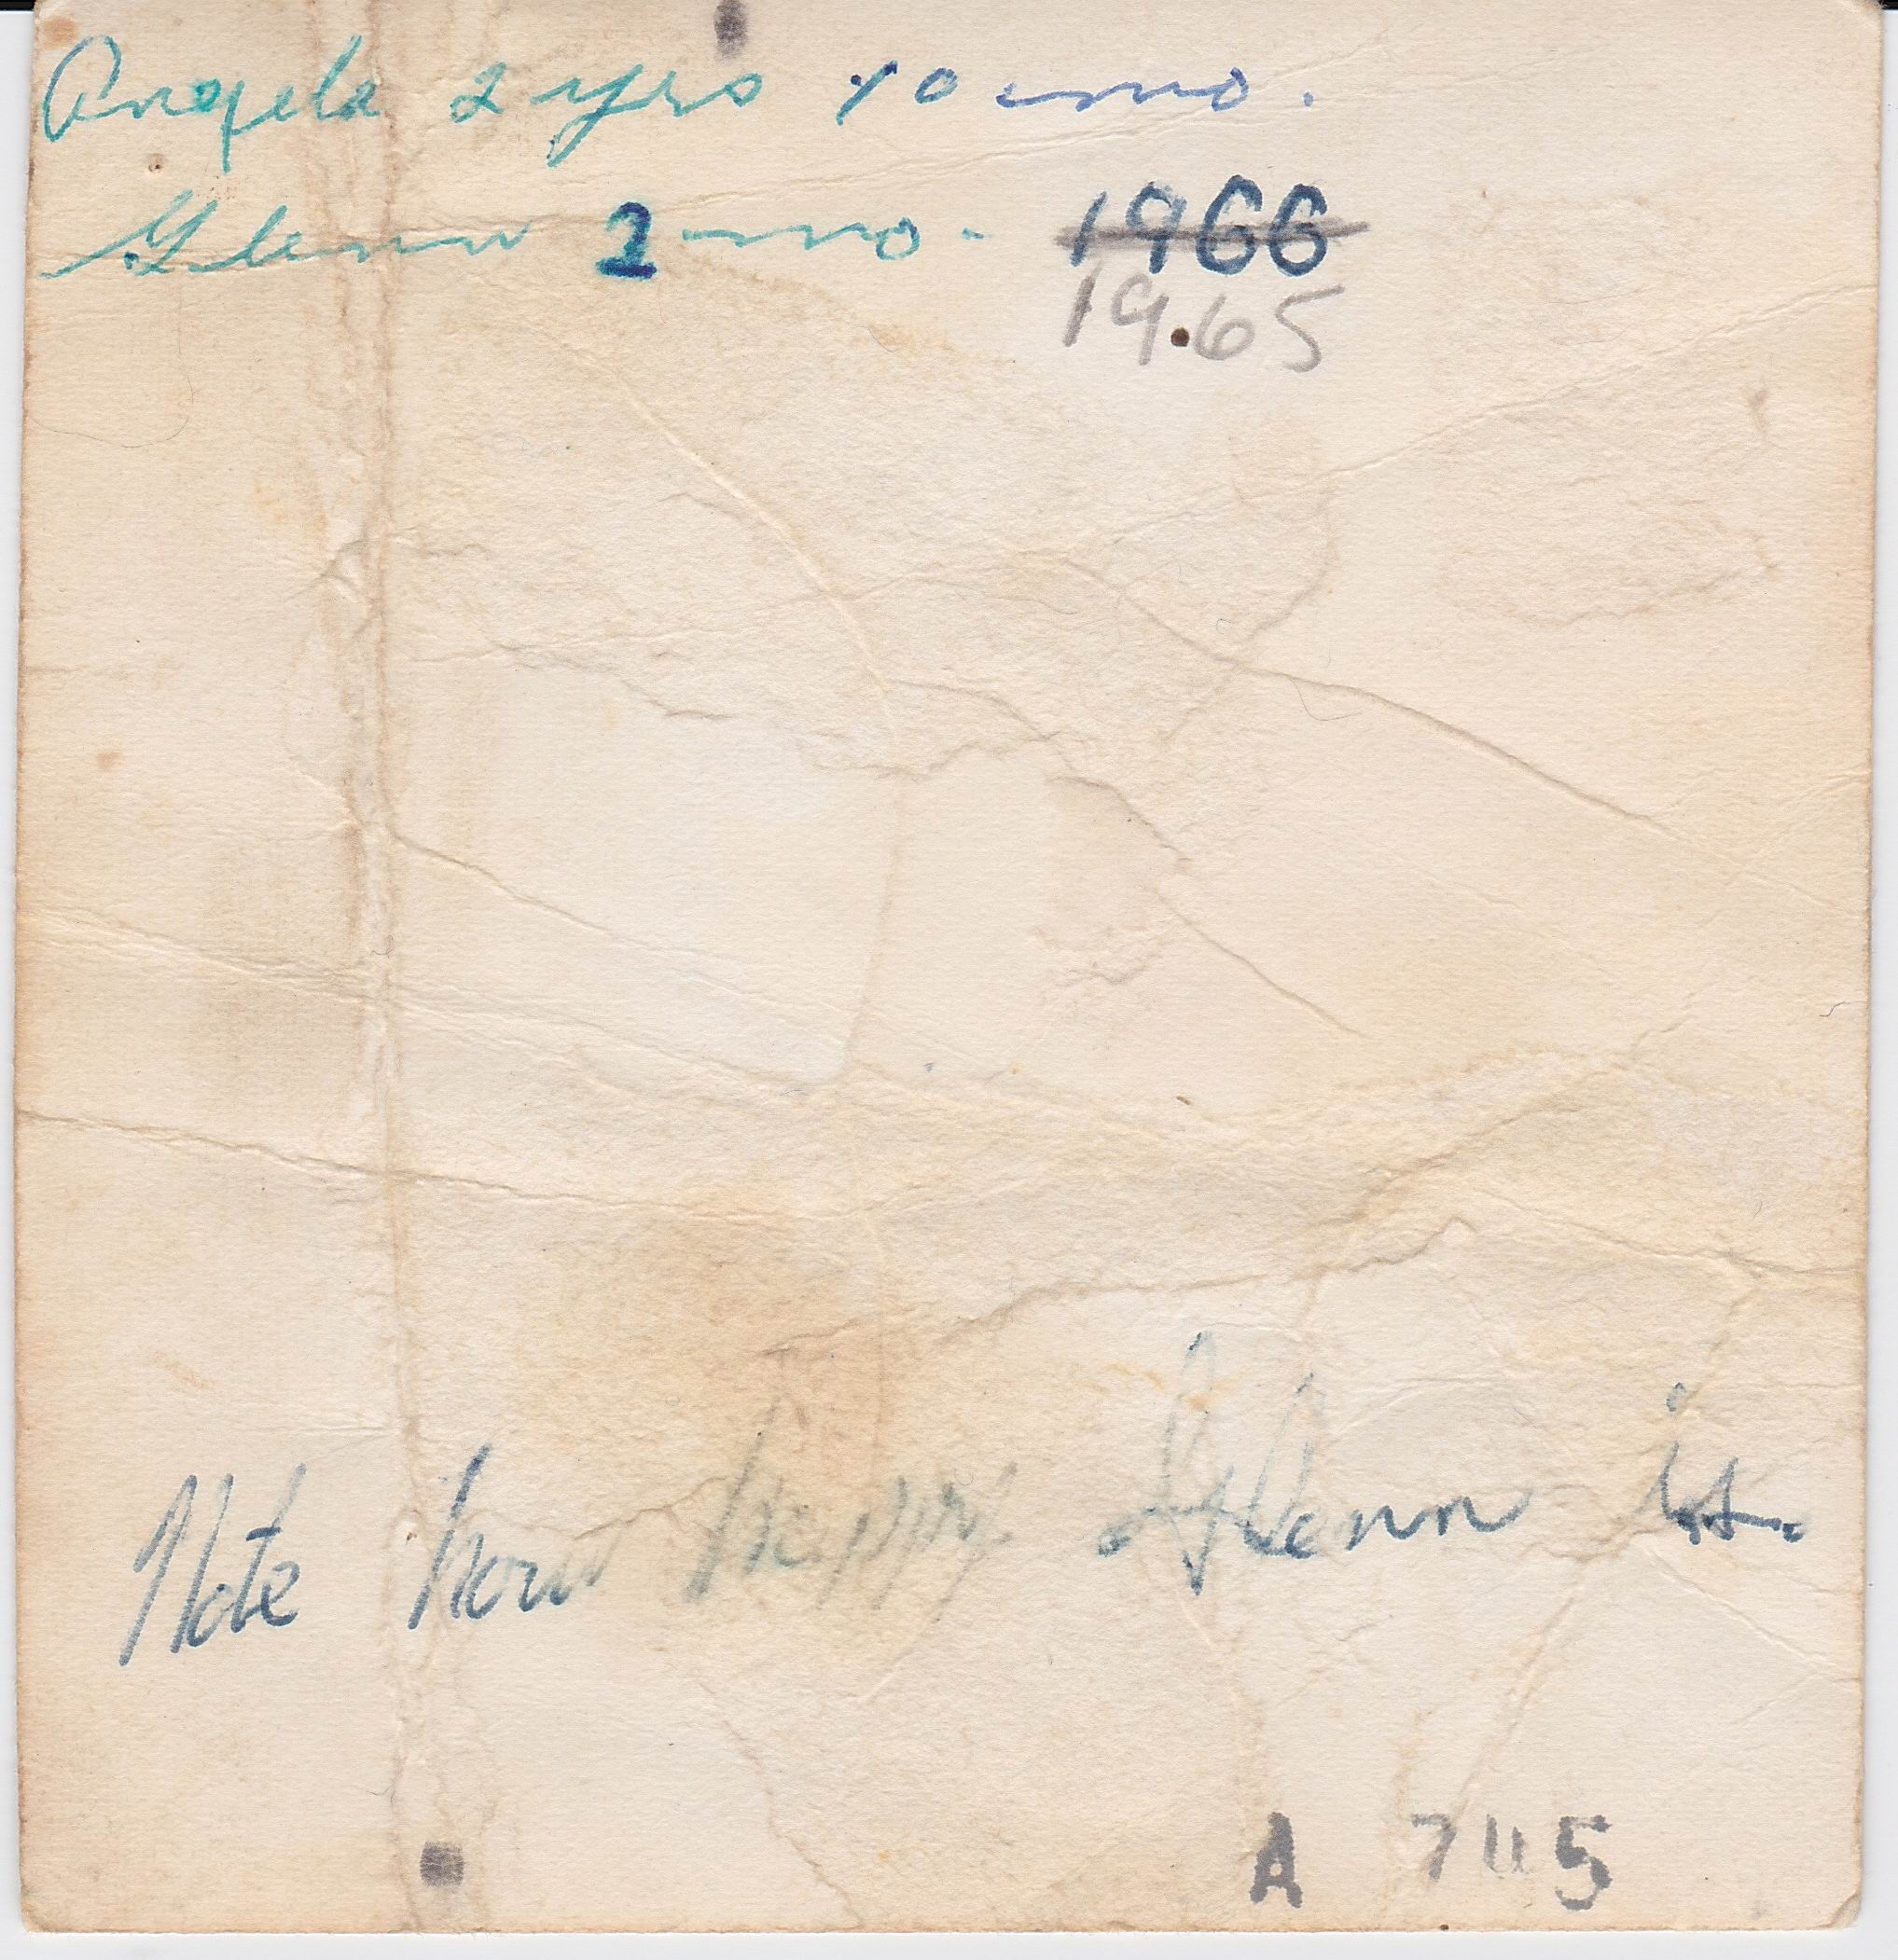 Angela 2 yrs 10 mo.
Glenn 2 mo. 1966
1965
Note how happy Glenn is.
A 745